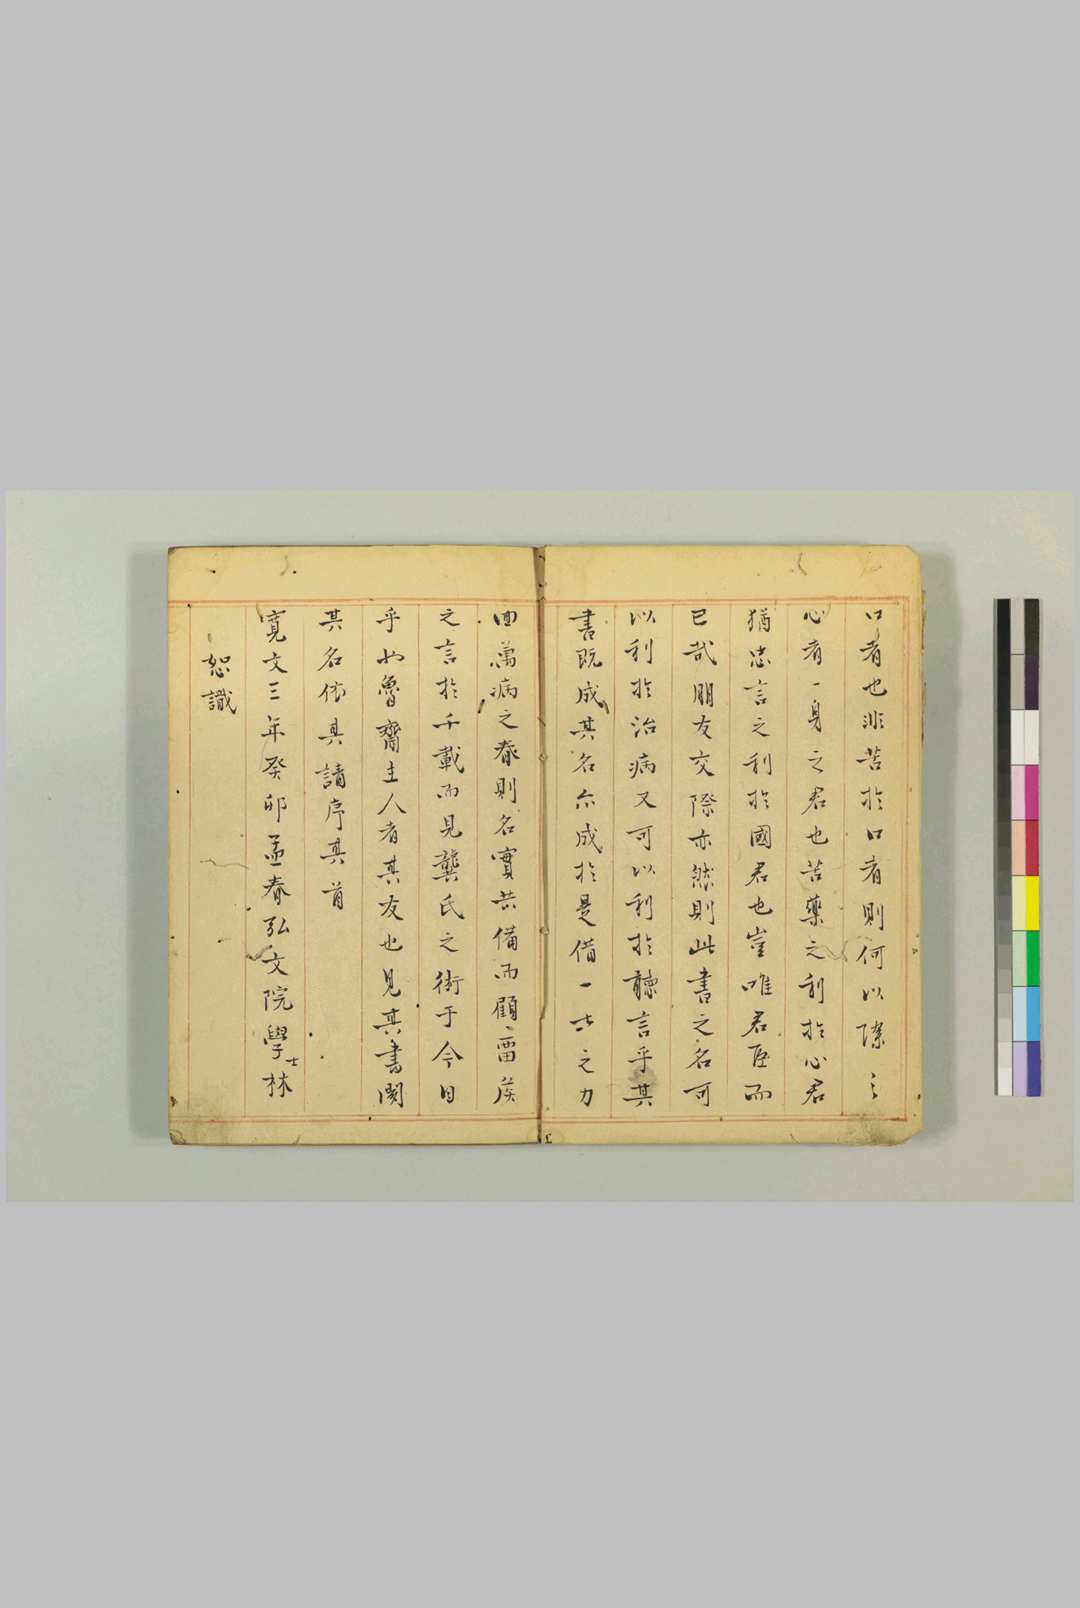 口者也非苦於口者則何以隙之
心者一身之君也苦藥之利於心君
猶忠言之利於國君也豈唯君臣而
已哉朋友交際亦然則此書之名可
以利於治病又可以利於聽言乎其
書既成其名亦成於是借一歩之力
回萬病之春則名實共備而顧留侯
之言於千載而見龔氏之術于今日
乎如魯齋主人者其友也見其書閱
其名依其請序其首
寛文三年癸卯孟春弘文院學士林
恕識